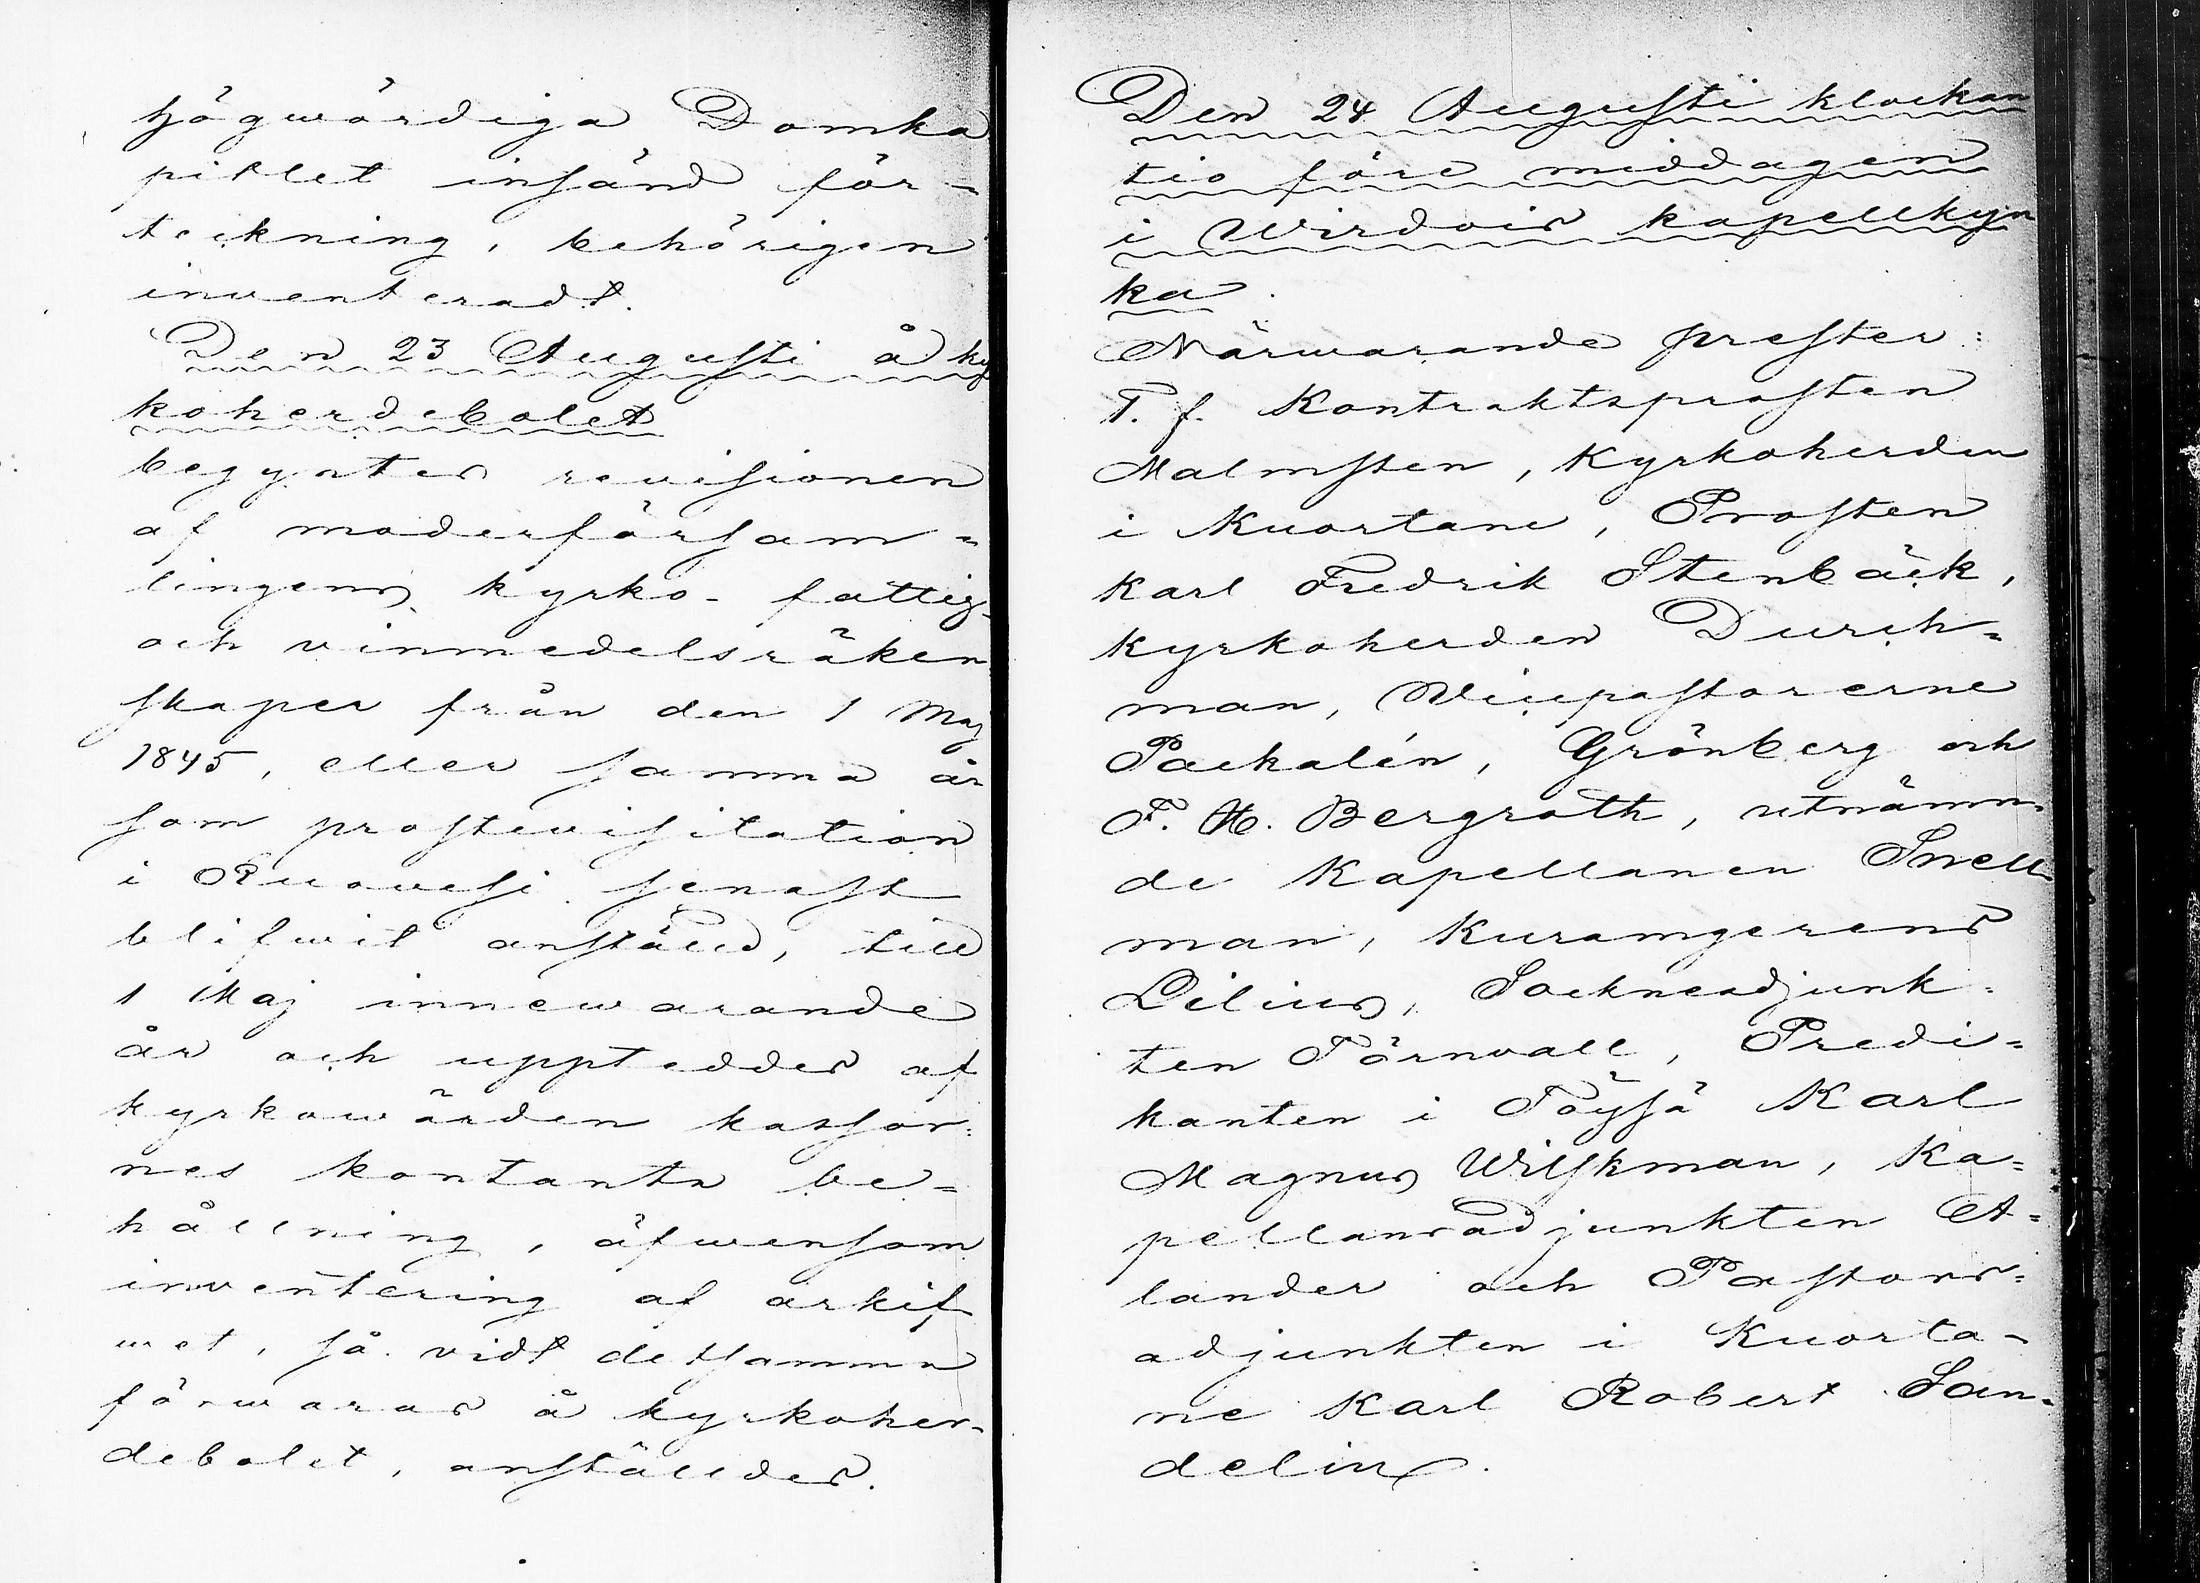 högwördiga Domka
pitlet insänd för=
teckning, behörigen
inventeradt.
Den 23 Augusti å ky
koherdebolet
begyntes revisionen
af moderförsam=
lingens kyrko- fattig-
och vinmedelsräken
skaper från den 1 Maj
1845, eller samma år
som prostevisitation
i Ruovesi senast
blifwit anställd, till
1 Maj innewarande
år och uppteddes af
kyrkowärden kassor=
nes kontanta be=
hållning, äfwensom
inventering af arkif
wet, så vidt detsamma
förwaras å kyrkoher=
debolet, anställdes.
Den 24 Augusti klockan
tio före middagen
i Wirdois kapellkyr
ka.
Närwarande prester:
T. f. Kontraktsprosten
Malmsten, Kyrkoherden
i Kuortane, Prosten
Karl Fredrik Stenbäck,
Kyrkoherden Durch=
man, Vicepastorerne
Packalén, Grönberg och
F. H. Bergroth, utnämn=
de Kapellanen Snell=
man, Kuramgerens
Lilius, Sockneadjunk=
ten Törnvall, Predi=
kanten i Töysä Karl
Magnus Wilskman, Ka=
pellansadjunkten A=
lander och Pastors=
adjunkten i Kuorta=
ne Karl Robert San=
delin.